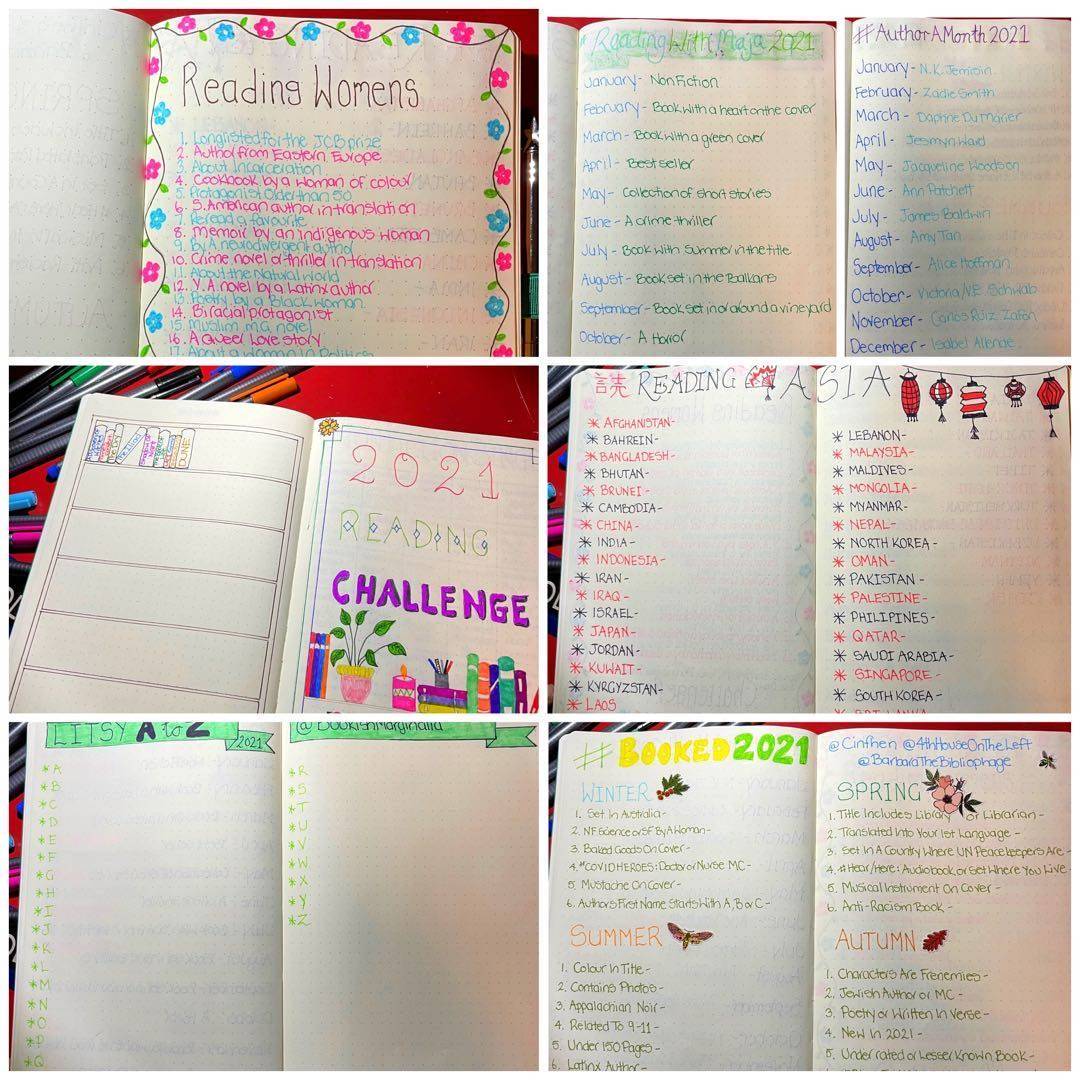 Reading Womens
1. Longlisted for the JCB prize
2. Author from Eastern Europe
3. About Incarceration
4. Cookbook by a woman of colour
5. Protagonist Older than 50
6. S. American author in translation
7. Reread a favourite
8. Memoir by an indigenous woman
9. By A neurodivergent author
10. Crime novel or thriller in translation
11. About the Natural World
12. Y.A novel by a Latinx author
13. Poetry by a Black woman
14. Biracial protagonist
15. Muslim MG novel
16. A Queer Love story
17. About a Woman in Politics
Reading With Maja 2021
January - Non Fiction
February - Book with a heart on the cover
March - Book with a green cover
April - Best seller
May - Collection of short stories
June - A crime thriller
July - Book with Summer in the title
August - Book set in the Balkans
September - Book set in or around a vineyard
October - A Horror
#AuthorAMonth 2021
January - N.K. Jemisin
February - Zadie Smith
March - Daphne Du Marier
April - Jesmyn Ward
May - Jacqueline Woodson
June - Ann Patchett
July - James Baldwin
August - Amy Tan
September - Alice Hoffman
October - Victoria/V.E Schwab
November - Carlos Ruiz Zafón
December - Isabel Allende
The Iliad
DUNE
2021
READING
CHALLENGE
読 READING ASIA
* AFGHANISTAN-
* BAHREIN-
* BANGLADESH-
* BHUTAN-
* BRUNEI-
* CAMBODIA-
* CHINA-
* INDIA-
* INDONESIA-
* IRAN-
* IRAQ-
* ISRAEL-
* JAPAN-
* JORDAN-
* KUWAIT-
* KYRGYZSTAN-
* LAOS
* LEBANON-
* MALAYSIA-
* MALDIVES-
* MONGOLIA-
* MYANMAR-
* NEPAL-
* NORTH KOREA-
* OMAN-
* PAKISTAN-
* PALESTINE-
* PHILIPINES-
* QATAR-
* SAUDI ARABIA-
* SINGAPORE-
* SOUTH KOREA-
* SRI LANKA
LITSY A to Z
2021
* A
* B
* C
* D
* E
* F
* G
* H
* I
* J
* K
* L
* M
* N
* O
* P
* Q
@BookishMarginalia
* R
* S
* T
* U
* V
* W
* X
* Y
* Z
#BOOKED2021
WINTER
1. Set In Australia-
2. NF Science or SF By A Woman-
3. Baked Goods On Cover-
4. #COVIDHEROES: Doctor or Nurse MC-
5. Mustache On Cover-
6. Authors First Name Starts With A, B or C-
SUMMER
1. Colour In Title-
2. Contains Photos-
3. Appalachian Noir-
4. Related To 9-11-
5. Under 150 Pages-
6. Latinx Author-
@Cinfhen @4thHouseOnTheLeft
@BarbaraTheBibliophage
SPRING
1. Title Includes Library or Librarian-
2. Translated Into Your 1st Language-
3. Set In A Country Where UN Peacekeepers Are-
4. #Hear/Here: Audiobook or Set Where You Live-
5. Musical Instrument On Cover-
6. Anti-Racism Book-
AUTUMN
1. Characters Are Frenemies-
2. Jewish Author or MC-
3. Poetry or Written In Verse-
4. New In 2021-
5. Under rated or Lesser Known Book-